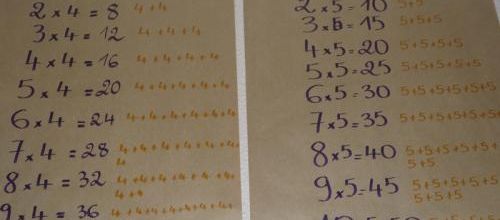 2 x 4 = 8 4+4
3 x 4 = 12 4+4+4
4 x 4 = 16 4+4+4+4
5 x 4 = 20 4+4+4+4+4
6 x 4 = 24 4+4+4+4+4+4
7 x 4 = 28 4+4+4+4+4+4+
4
8 x 4 = 32 4+4+4+4+4+4+
4+4
9 x 4 = 36
2 x 5 = 10 5+5
3 x 5 = 15 5+5+5
4 x 5 = 20 5+5+5+5
5 x 5 = 25 5+5+5+5+5
6 x 5 = 30 5+5+5+5+5+5
7 x 5 = 35 5+5+5+5+5+5+
8 x 5 = 40 5+5+5+5+5+5+
5+5
9 x 5 = 45 5+5+5+5+5+
5+5+5+5